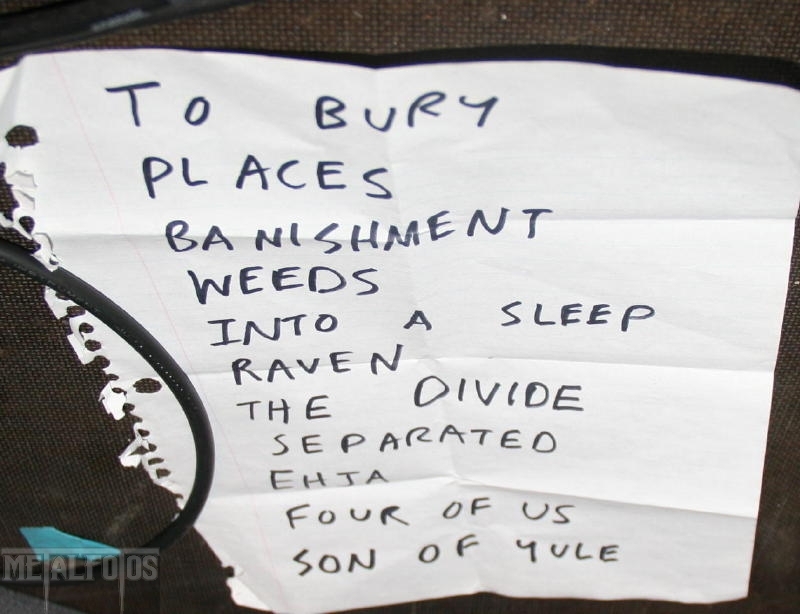 TO BURY
PLACES
BANISHMENT
WEEDS
INTO A SLEEP
RAVEN
THE DIVIDE
SEPARATED
EHTA
FOUR OF US
SON OF YULE
METALFOTOS